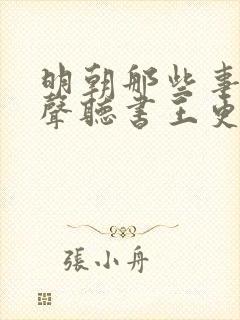 明朝那些事
聲聽書王更
張小舟